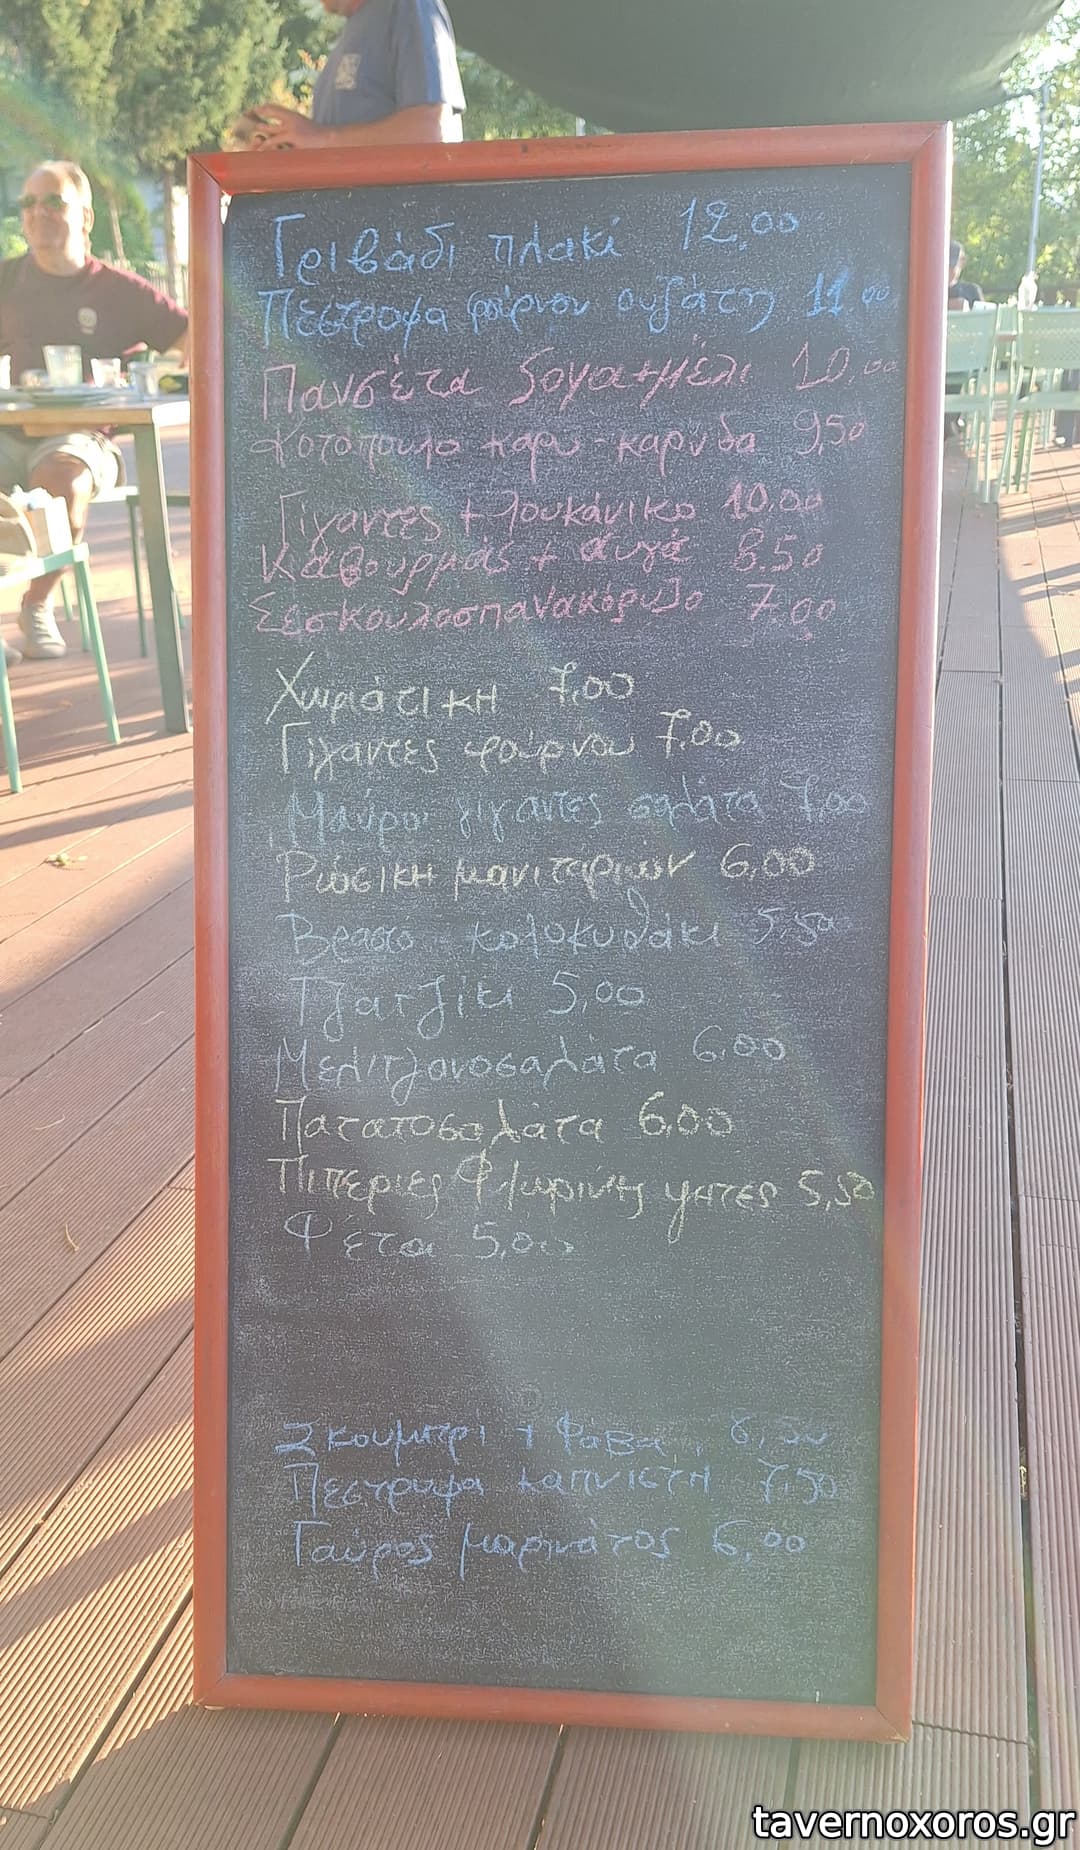 Γριβάδι πλακί 12,00
Πέστροφα φούρνου ουζάτη 11.00
Πανσέτα σογα+μέλι 10,00
Κοτόπουλο καρυ-καρύδα 9,50
Γίγαντες + λουκάνικο 10.00
Καβουρμάς + αυγά 8.50
Σεσκουλοσπανακόρυζο 7.00
Χωριάτικη 7,00
Γίγαντες φούρνου 7.00
Μαύροι γίγαντες σαλάτα 7,00
Ρώσικη μανιταριών 6,00
Βραστό κολοκυθάκι 5,50
Τζατζίκι 5,00
Μελιτζανοσαλάτα 6,00
Πατατοσαλάτα 6,00
Πιπεριές Φλωρίνης ψητες 5,50
Φέτα 5,00
Σκουμπρί + Φάβα
Πέστροφα καπνιστή 7,50
Γαύρος μαρινάτος 6,00
tavernoxoros.gr